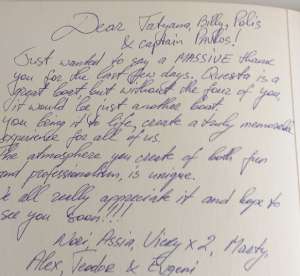 Dear Tatyana, Billy, Polis
& captain Pavlos!
Just wanted to say a MASSIVE thank
you for the last few days. Questa is a
great boat but without the four of you,
it would be just another boat.
You bring it to life, create a truly memorable
experience for all of us.
The atmosphere you create of both fun
and professionalism, is unique.
We all really appreciate it and hope to
see you soon!!!!
Assia, Vicky x 2, Marty,
Alex, Teodor & Evgeni